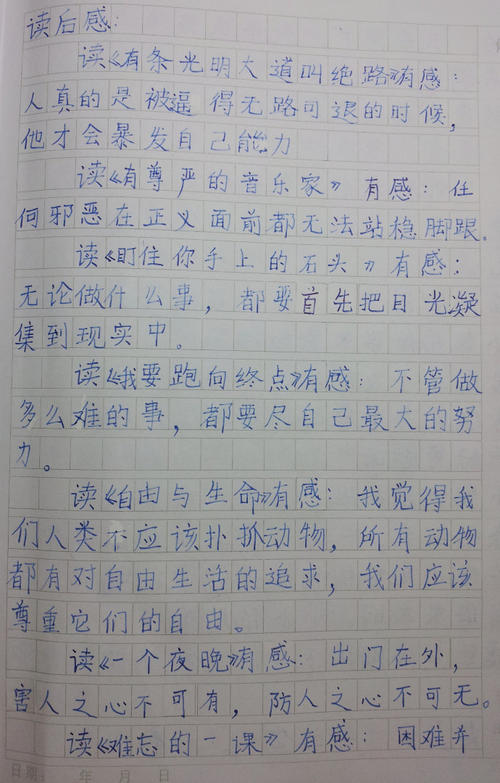 读后感:
读《有条光明大道叫绝路》有感:
人真的是被逼得无路可退的时候,
他才会暴发自己能力
读《有尊严的音乐家》有感:任
何邪恶在正义面前都无法站稳脚跟。
读《盯住你手上的石头》有感:
无论做什么事,都要首先把目光凝
集到现实中。
读《我要跑向终点》有感:不管做
多么难的事,都要尽自己最大的努
力。
读《自由与生命》有感:我觉得我
们人类不应该扑抓动物,所有动物
都有对自由生活的追求,我们应该
尊重它们的自由。
读《一个夜晚》有感:出门在外,
害人之心不可有,防人之心不可无。
读《难忘的一课》有感:困难并
日期: 年 月 日